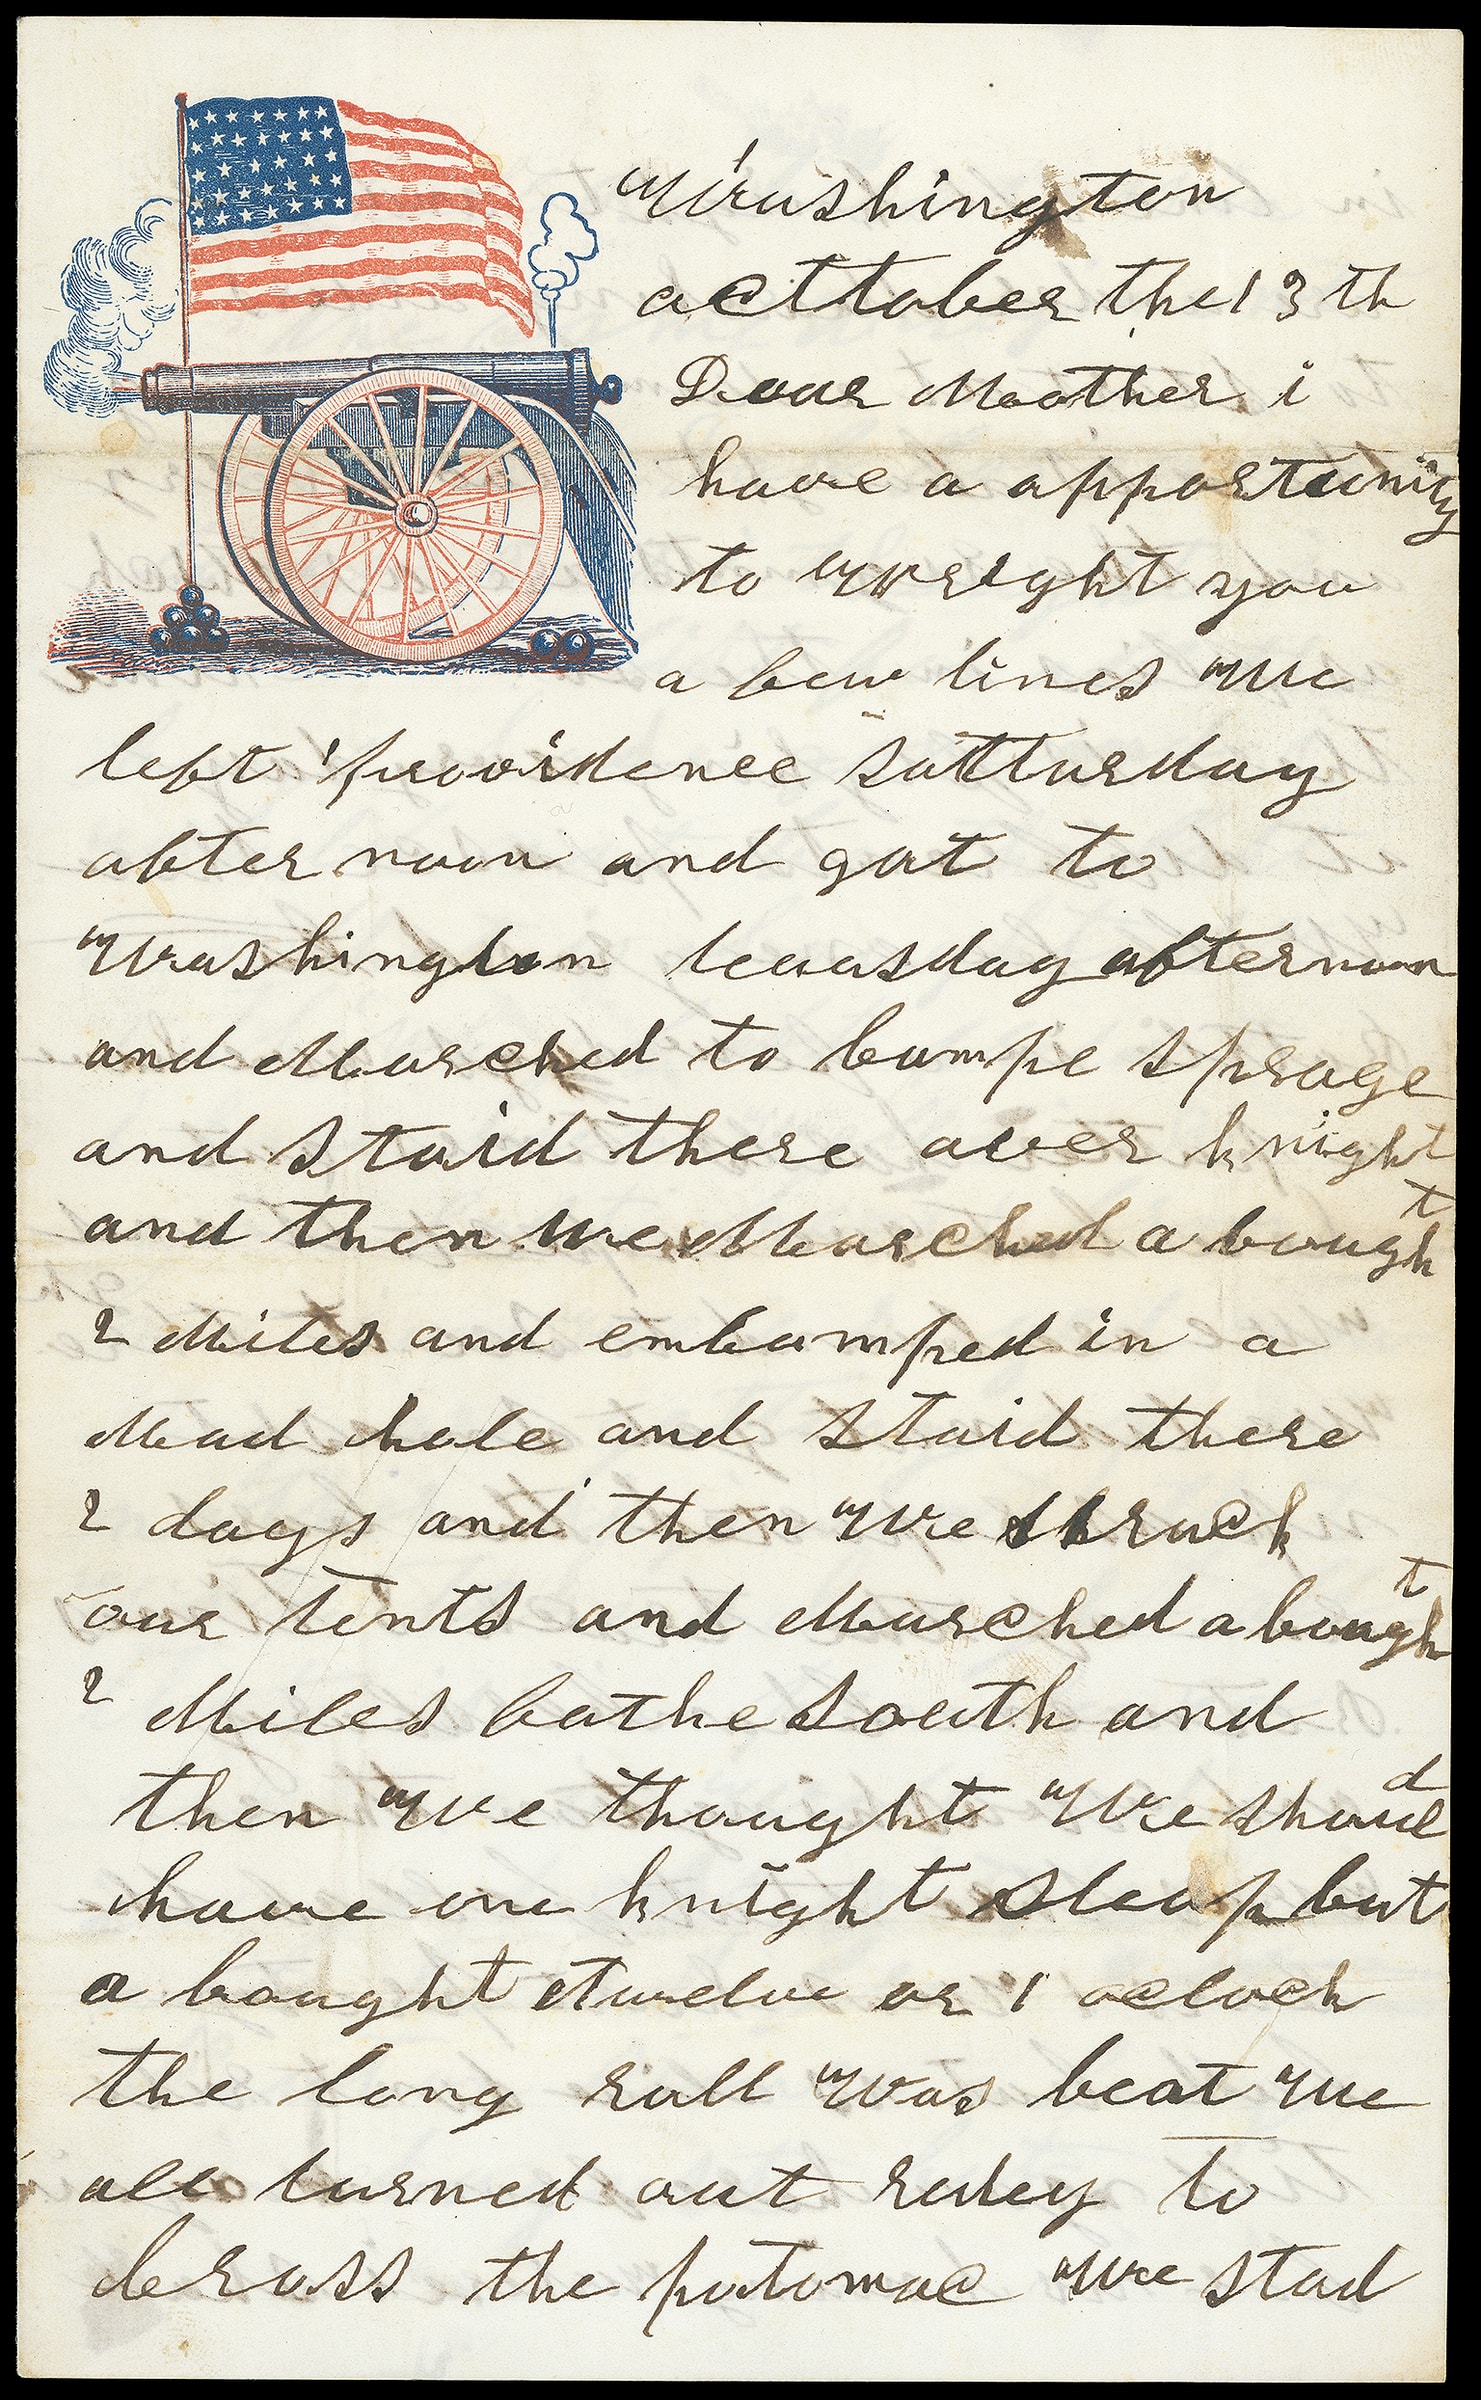 Washington
octtober the 13 th
Dear Moother i
have a opportunity
to wreight you
a few lines we
left providence satturday
after noon and got to
Washington teuasday afternoon
and Marched to campe sprage
and staid there over knight
and then we Marched a bought
2 Miles and encamped in a
Mud hole and staid there
2 days and then we struck
our tents and Marched a bought
2 Miles to the South and
then we thought we should
have one knight sleap but
a bought twelve or 1 oclock
the long roll was beat we
all turned out redey to
cross the potomac we stad